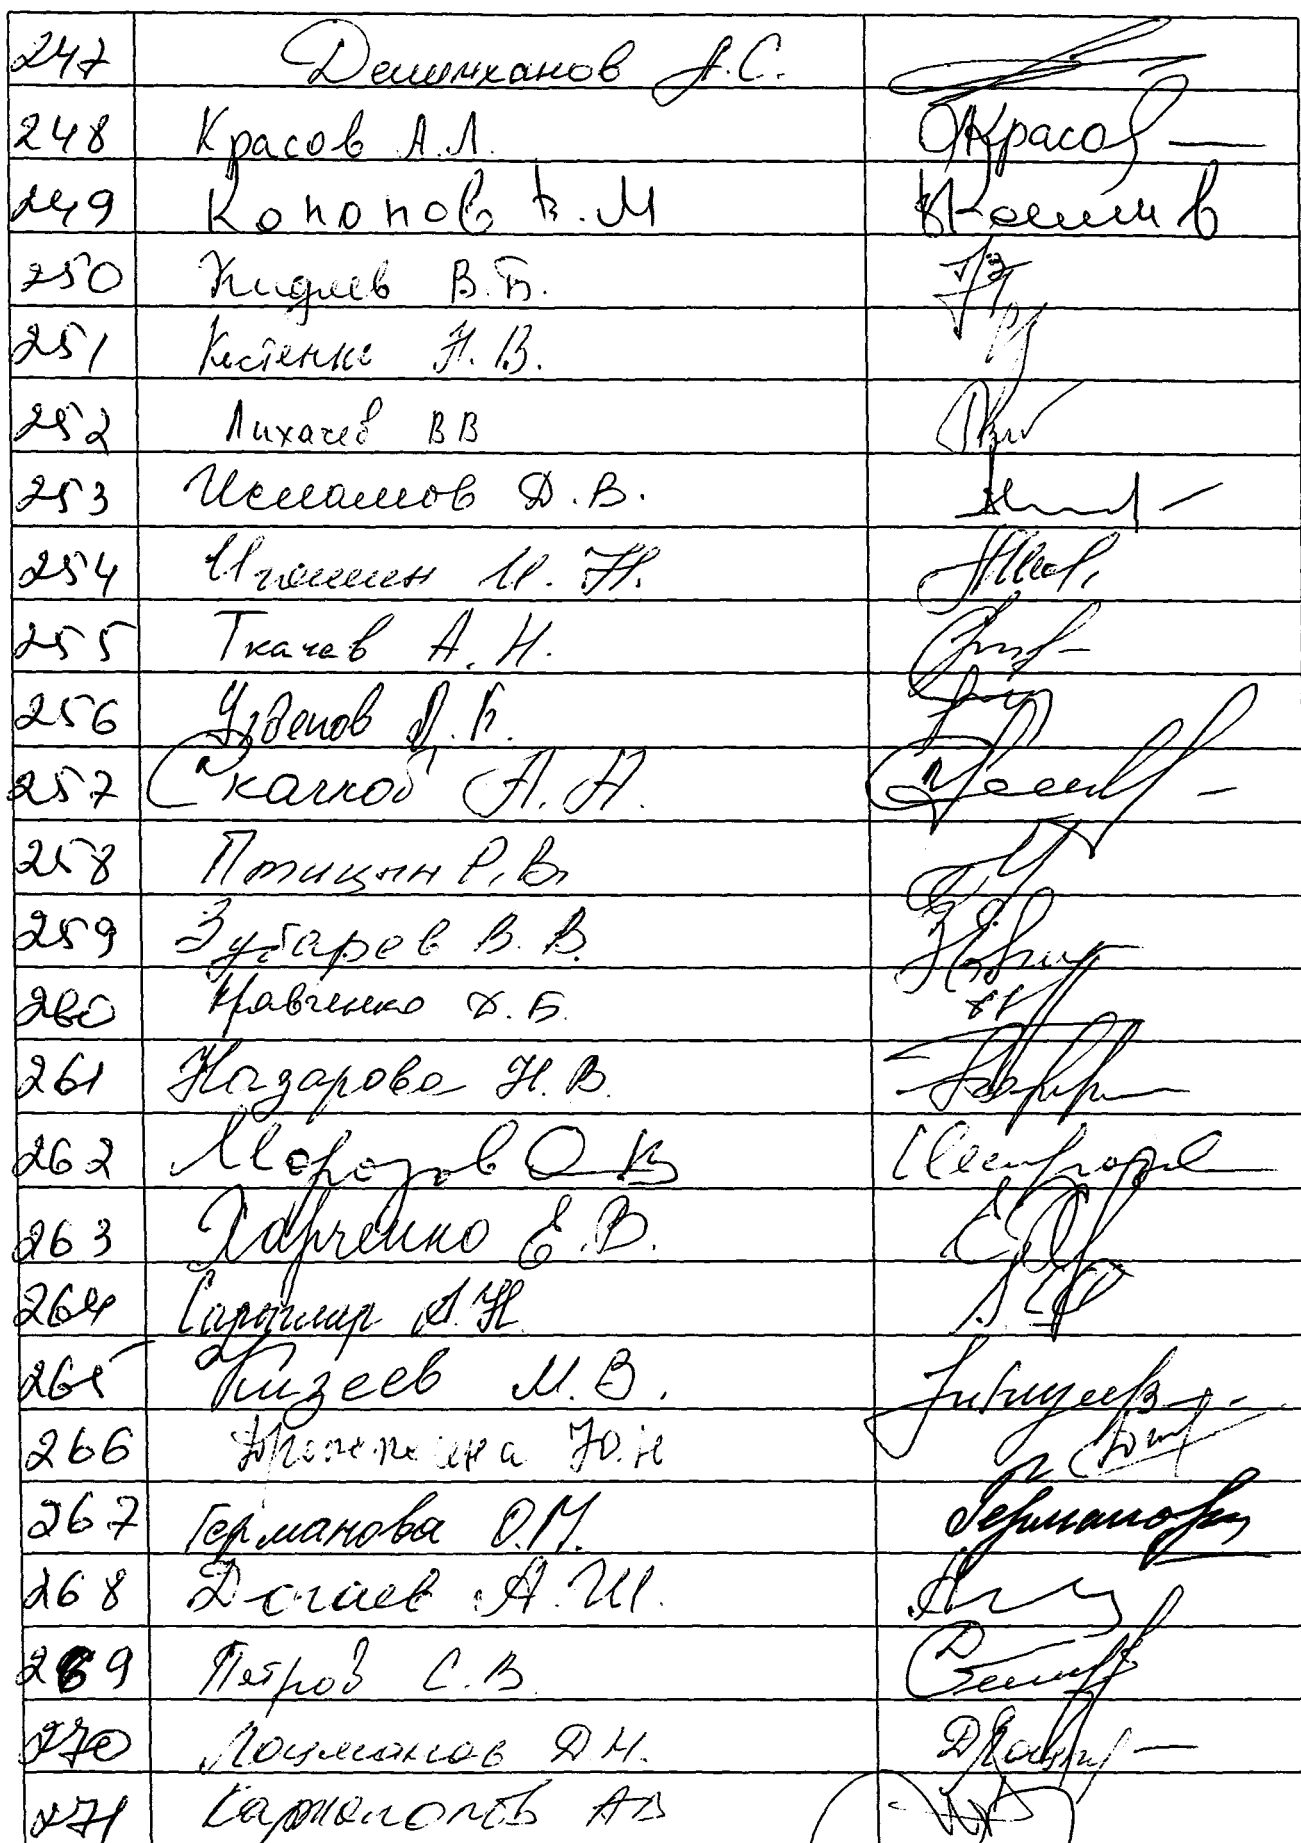 247 Делимханов А.С.
248 Красов А.Л. Красов
249 Кононов В.М
250 Кидяев В.Б.
251 Костенко Н.В.
252 Лихачев ВВ
253 Исламов Д.В.
254 Игошин И.Н.
255 Ткачев А.Н.
256 Узденов Д.Б.
257 Скачков А.А.
258 Птицын Р.В.
259 Зубарев В.В.
260 Кравченко Д.Б.
261 Назарова Н.В.
262 Морозов О В
263 Харченко Е.В.
264 А.Н.
265 Кизеев М.В.
266 Дрожжина Ю.Н
267 Германова О.М. Германова
268 Догаев А.Ш.
269 Петров С.В.
270 Лоцманов Д.Н.
271 Картаполов АВ